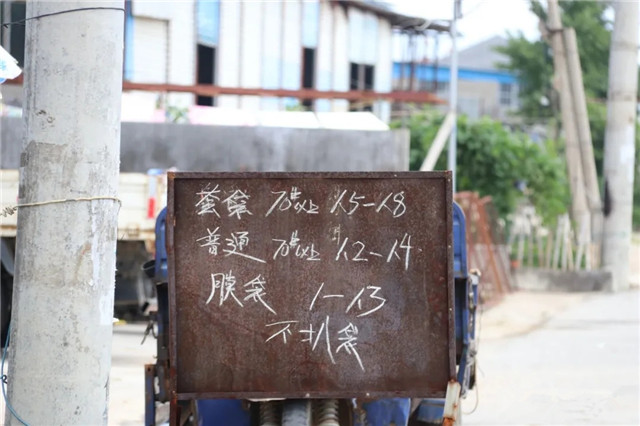 套袋 70以上 1.5-1.8
普通 70以上 1.2-1.4
膜袋 1-1.3
不扒袋